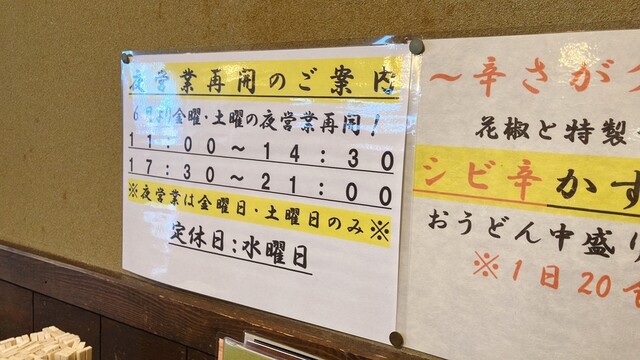 夜営業再開のご案内
6月より金曜・土曜の夜営業再開！
11：00～14：30
17：30～21：00
※夜営業は金曜日・土曜日のみ※
定休日：水曜日
～辛さが
花椒と特製
シビ辛かす
おうどん中盛り
※1日20食